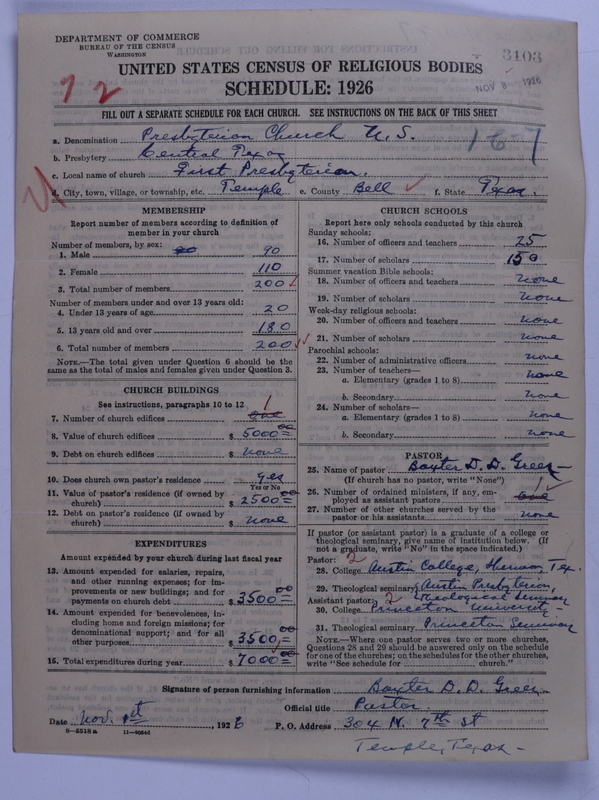 DEPARTMENT OF COMMERCE
BUREAU OF THE CENSUS
WASHINGTON
3103
NOV 8 1926
UNITED STATES CENSUS OF RELIGIOUS BODIES
SCHEDULE: 1926
7 2
FILL OUT A SEPARATE SCHEDULE FOR EACH CHURCH. SEE INSTRUCTIONS ON THE BACK OF THIS SHEET
a. Denomination Presbyterian Church U.S.
167
b. Presbytery Central Texas
c. Local name of church First Presbyterian.
d. City, town, village, or township, etc. Temple e. County Bell f. State Texas.
MEMBERSHIP
Report number of members according to definition of member in your church
Number of members, by sex:
1. Male 90
2. Female 110
3. Total number of members 200
Number of members under and over 13 years old:
4. Under 13 years of age 20
5. 13 years old and over 180
6. Total number of members 200
NOTE.—The total given under Question 6 should be the
same as the total of males and females given under Question 3.
CHURCH BUILDINGS
See instructions, paragraphs 10 to 12
7. Number of church edifices 1
8. Value of church edifices $ 5000 00
9. Debt on church edifices $ none
10. Does church own pastor's residence yes
Yes or No
11. Value of pastor's residence (if owned by
church) $ 2500 00
12. Debt on pastor's residence (if owned by
church) $ none
EXPENDITURES
Amount expended by your church during last fiscal year
13. Amount expended for salaries, repairs,
and other running expenses; for im-
provements or new buildings; and for
payments on church debt $ 3500 00
14. Amount expended for benevolences, in-
cluding home and foreign missions; for
denominational support; and for all
other purposes $ 3500 00
15. Total expenditures during year $ 7000 00
CHURCH SCHOOLS
Report here only schools conducted by this church
Sunday schools:
16. Number of officers and teachers 25
17. Number of scholars 150
Summer vacation Bible schools:
18. Number of officers and teachers none
19. Number of scholars none
Week-day religious schools:
20. Number of officers and teachers none
21. Number of scholars none
Parochial schools:
22. Number of administrative officers none
23. Number of teachers—
a. Elementary (grades 1 to 8) none
b. Secondary none
24. Number of scholars—
a. Elementary (grades 1 to 8) none
b. Secondary none
PASTOR
25. Name of pastor Baxter D. D. Greer
(If church has no pastor, write "None")
26. Number of ordained ministers, if any, em-
ployed as assistant pastors 1
27. Number of other churches served by the
pastor or his assistants none
If pastor (or assistant pastor) is a graduate of a college or
theological seminary, give name of institution below. (If
not a graduate, write "No" in the space indicated.)
Pastor: 2
28. College Austin College, Sherman, Tex.
29. Theological seminary Austin Presbyterian,
Assistant pastor: 2 Theological Seminary
30. College Princeton University
31. Theological seminary Princeton Seminary
NOTE.—Where one pastor serves two or more churches,
Questions 28 and 29 should be answered only on the schedule
for one of the churches; on the schedules for the other churches,
write "See schedule for church."
Signature of person furnishing information Baxter D. D. Greer
Official title Pastor.
Date Nov. 1st, 1926 P. O. Address 304 N. 7th St
8-5518 a 11-9054d
Temple, Texas